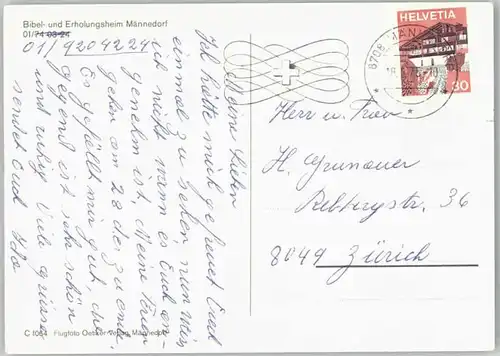 Bibel- und Erholungsheim Männedorf
01/74 03 24
01/9204224
Meine Lieben
Ich hätte mich gefreut Euch
einmal zu sehen nun weiss
ich nicht wann es Euch an-
genehm ist. Meine Ferien
gehen am 28 des zu ende.
Es gefällt mir gut, die
Gegend ist sehr schön
und ruhig Viele grüsse
sendet Euch Ida
C 1064 Flugfoto Verlag, Männedorf
HELVETIA
30
8708
Herr u. Frau
H. Grunauer
36
8049 Zürich